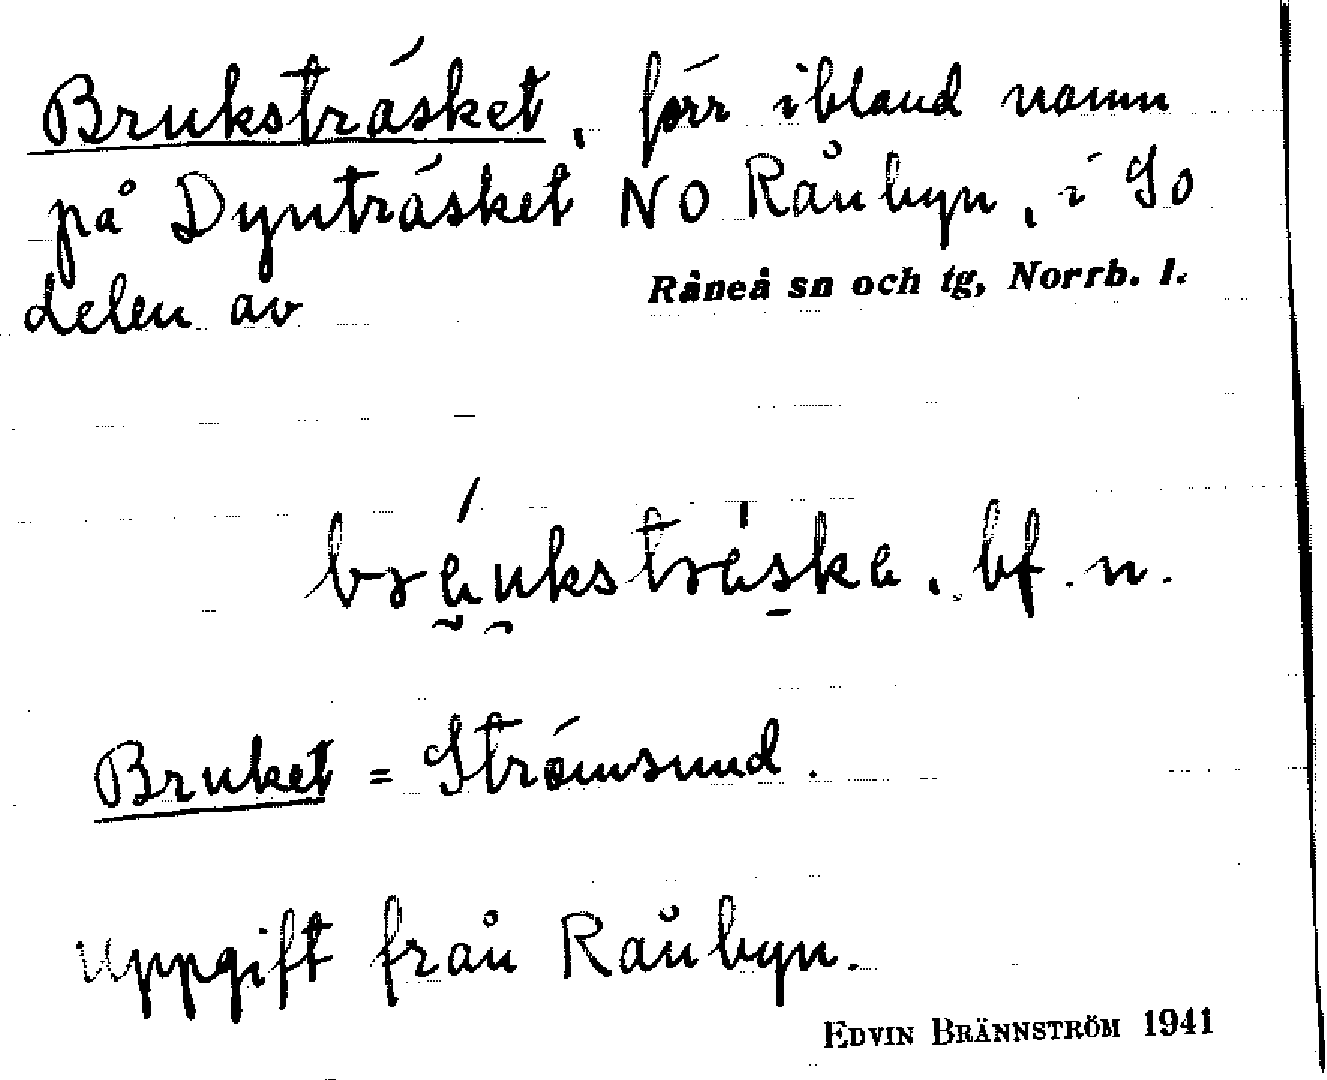 Bruksträsket, förr ibland namn
på Dynträsket NO Rånbyn, i So
delen av Råneå sn och tg, Norrb. l.
bf. n.
Bruket = Strömsund.
Uppgift från Rånbyn.
EDVIN BRÄNNSTRÖM 1941